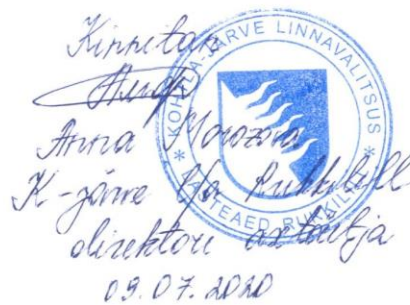 Kinnitan
Anna Morozova
K-Järve l/a Rukkilill
direktori asetäitja
09.07.2020
KOHTLA-JÄRVE LINNAVALITSUS
* LASTEAED RUKKILILL *